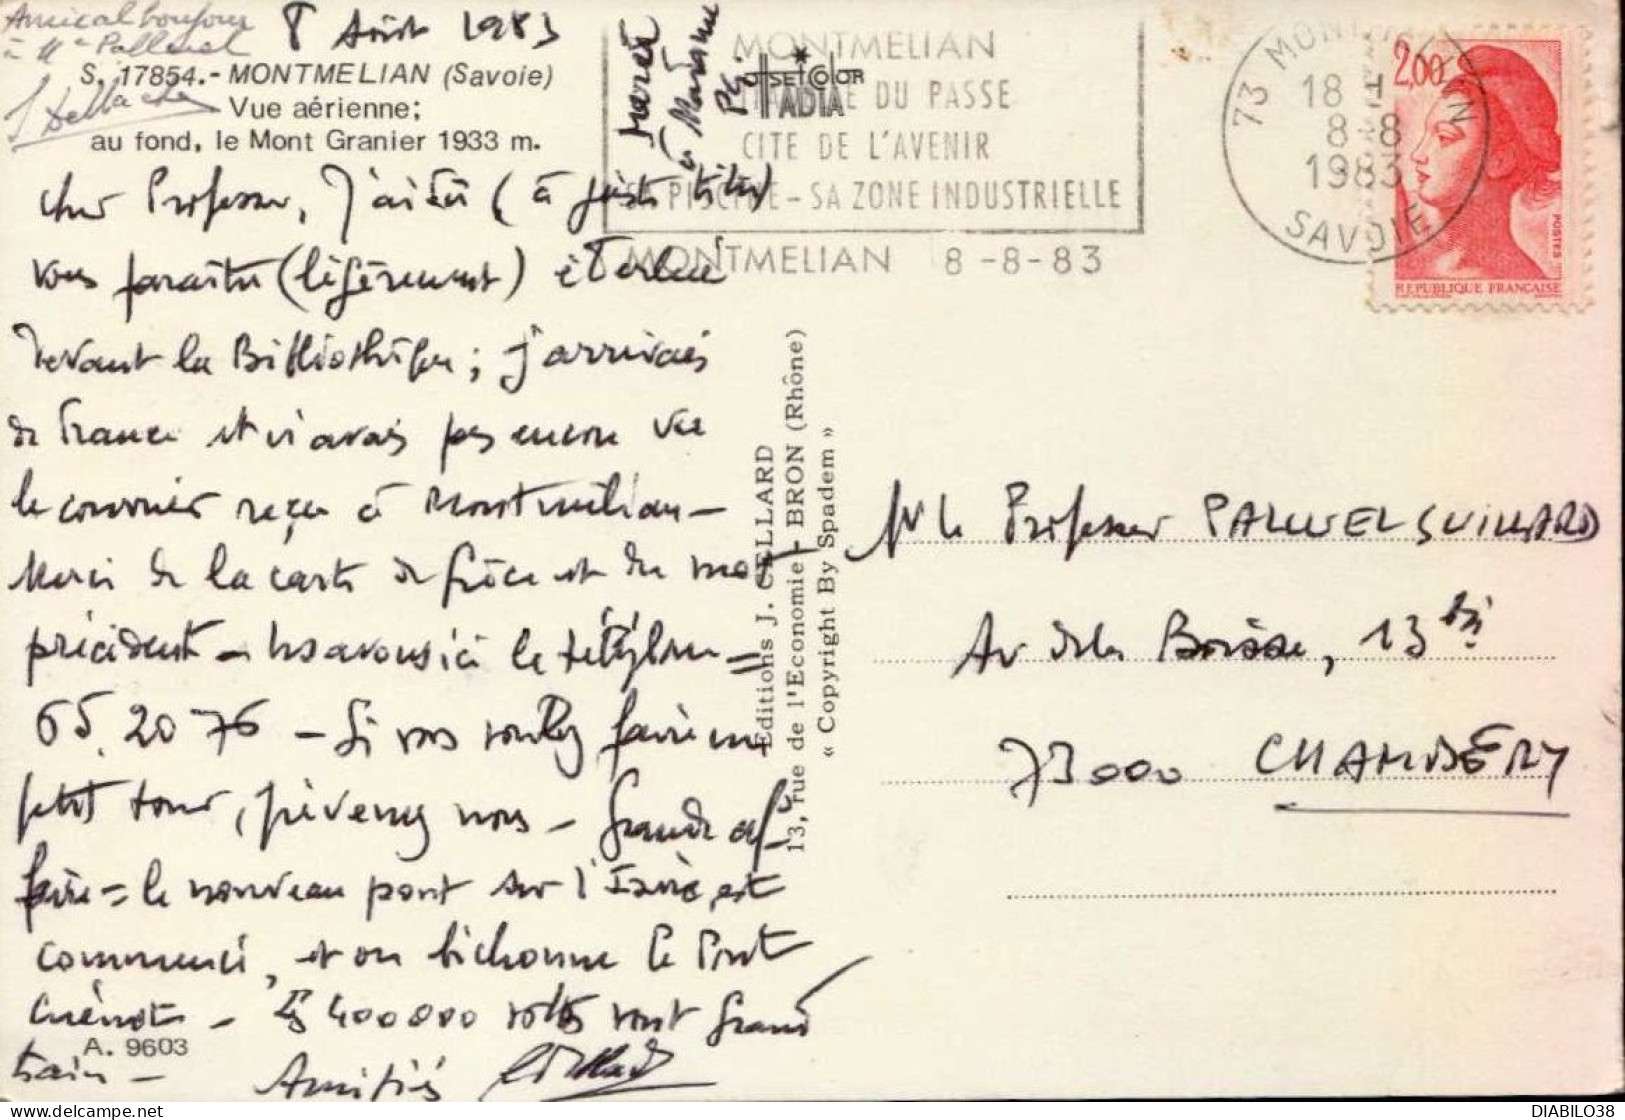 Amical bonjour
à Me Palluel
8 Août 1983
S. 17854.- MONTMELIAN (Savoie)
Vue aérienne;
au fond, le Mont Granier 1933 m.
Merci
à Madame
PG
OFFSET COLOR
IADIA
MONTMELIAN
DU PASSE
CITE DE L'AVENIR
SA PISCINE - SA ZONE INDUSTRIELLE
MONTMELIAN 8-8-83
73 MONTMELIAN
18 H
8-8
1983
SAVOIE
2,00
POSTES
REPUBLIQUE FRANÇAISE
Cher Professeur, J'ai dû (à juste titre)
vous paraître (légèrement) éberlué
devant la Bibliothèque; j'arrivais
de France et n'avais pas encore vu
le courrier reçu à Montmélian -
Merci de la carte de Grèce et du mot
précédent - Nous avons ici le téléphone =
65.20 76 - Si vous voulez faire un
petit tour, prévenez nous - Grande af-
faire = le nouveau pont sur l'Isère est
commencé, et on bichonne le Pont
Cuénot - Les 400 000 votes vont grand
train -
A. 9603
Amitiés
Editions J. CELLARD
13, rue de l'Economie - BRON (Rhône)
« Copyright By Spadem »
Mr le Professeur PALLUEL GUILLARD
Av de la Boisse, 13 bis
73000 CHAMBÉRY
DIABILO38